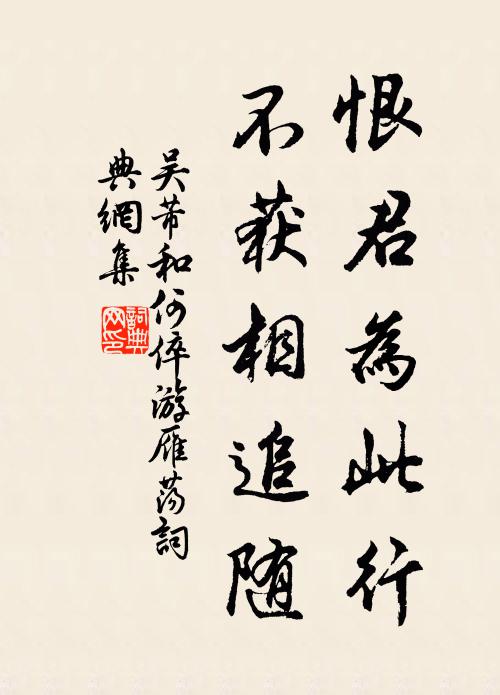 恨君為此行
不获相追随
吴芾和何倅游雁荡詞
典網集
詞典网印